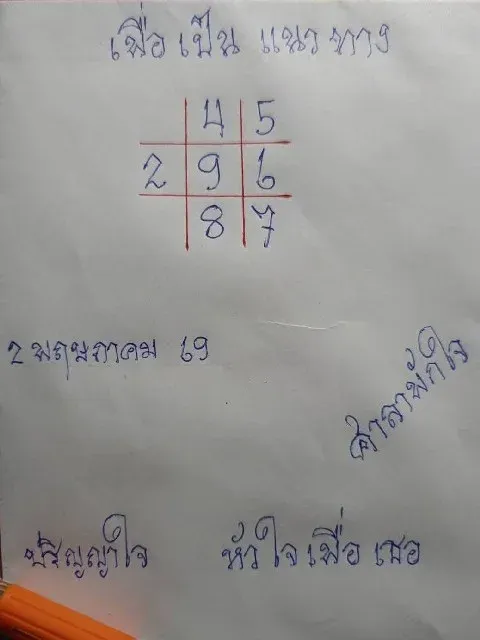 เพื่อ เป็น แนว ทาง
4 5
2 9 6
8 7
2 พฤษภาคม 69
ศาลาพักใจ
ปริญญาใจ หัวใจ เพื่อ เธอ